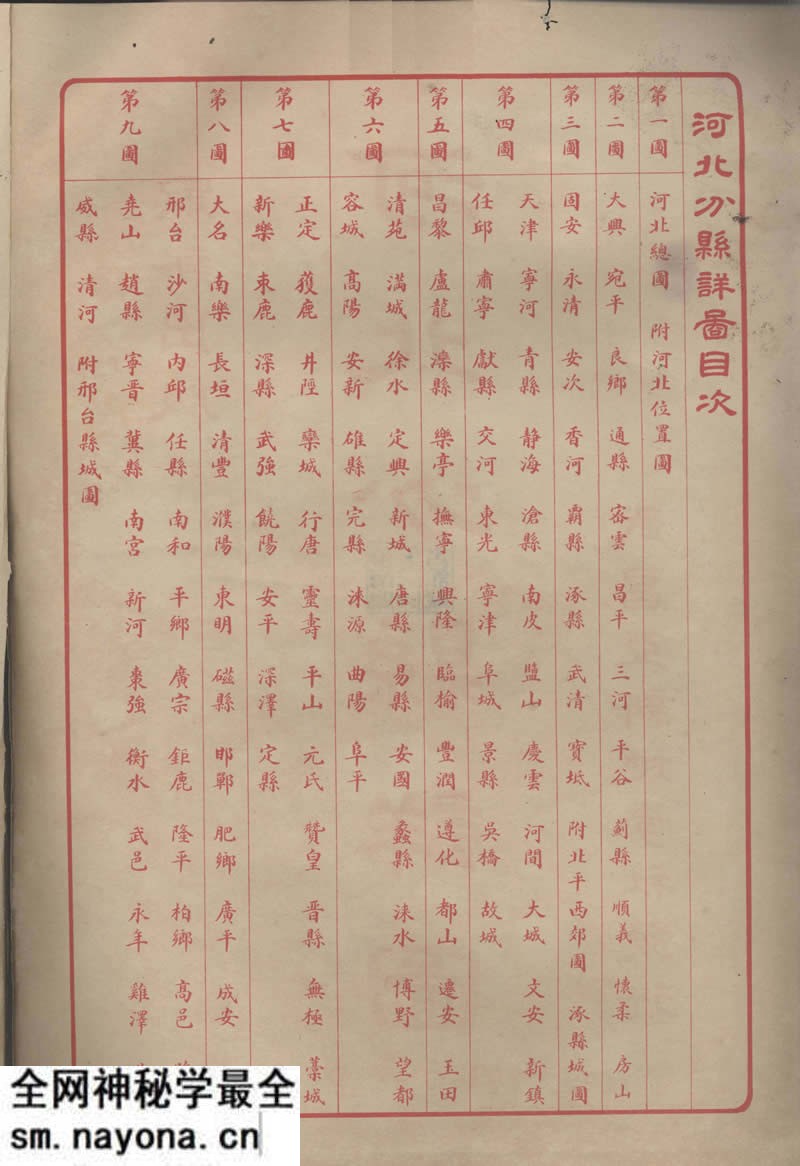 河北分縣詳圖目次
第一圖 河北總圖 附河北位置圖
第二圖 大興 宛平 良鄉 通縣 密雲 昌平 三河 平谷 薊縣 順義 懷柔 房山
第三圖 固安 永清 安次 香河 霸縣 涿縣 武清 寶坻 附北平西郊圖 涿縣城圖
第四圖 天津 寧河 青縣 静海 滄縣 南皮 鹽山 慶雲 河間 大城 文安 新鎮
任邱 肅寧 獻縣 交河 東光 寧津 阜城 景縣 吳橋 故城
第五圖 昌黎 盧龍 灤縣 樂亭 撫寧 興隆 臨榆 豐潤 遵化 都山 遷安 玉田
第六圖 清苑 滿城 徐水 定興 新城 唐縣 易縣 安國 蠡縣 淶水 博野 望都
容城 高陽 安新 雄縣 完縣 淶源 曲陽 阜平
第七圖 正定 獲鹿 井陘 欒城 行唐 靈壽 平山 元氏 贊皇 晋縣 無極 藁城
新樂 束鹿 深縣 武強 饒陽 安平 深澤 定縣
第八圖 大名 南樂 長垣 清豐 濮陽 東明 磁縣 邯鄲 肥鄉 廣平 成安
第九圖 邢台 沙河 内邱 任縣 南和 平鄉 廣宗 鉅鹿 隆平 柏鄉 高邑
堯山 趙縣 寧晋 冀縣 南宮 新河 棗強 衡水 武邑 永年 雞澤
威縣 清河 附邢台縣城圖
全网神秘学最全
sm.nayona.cn